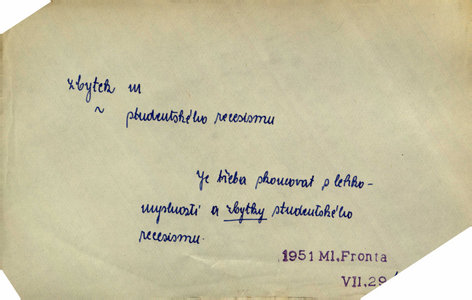 zbytek m
~ studentského recesismu
Je třeba skoncovat s lehko-
myslností a zbytky studentského
recesismu.
1951 Ml.Fronta
VII.29